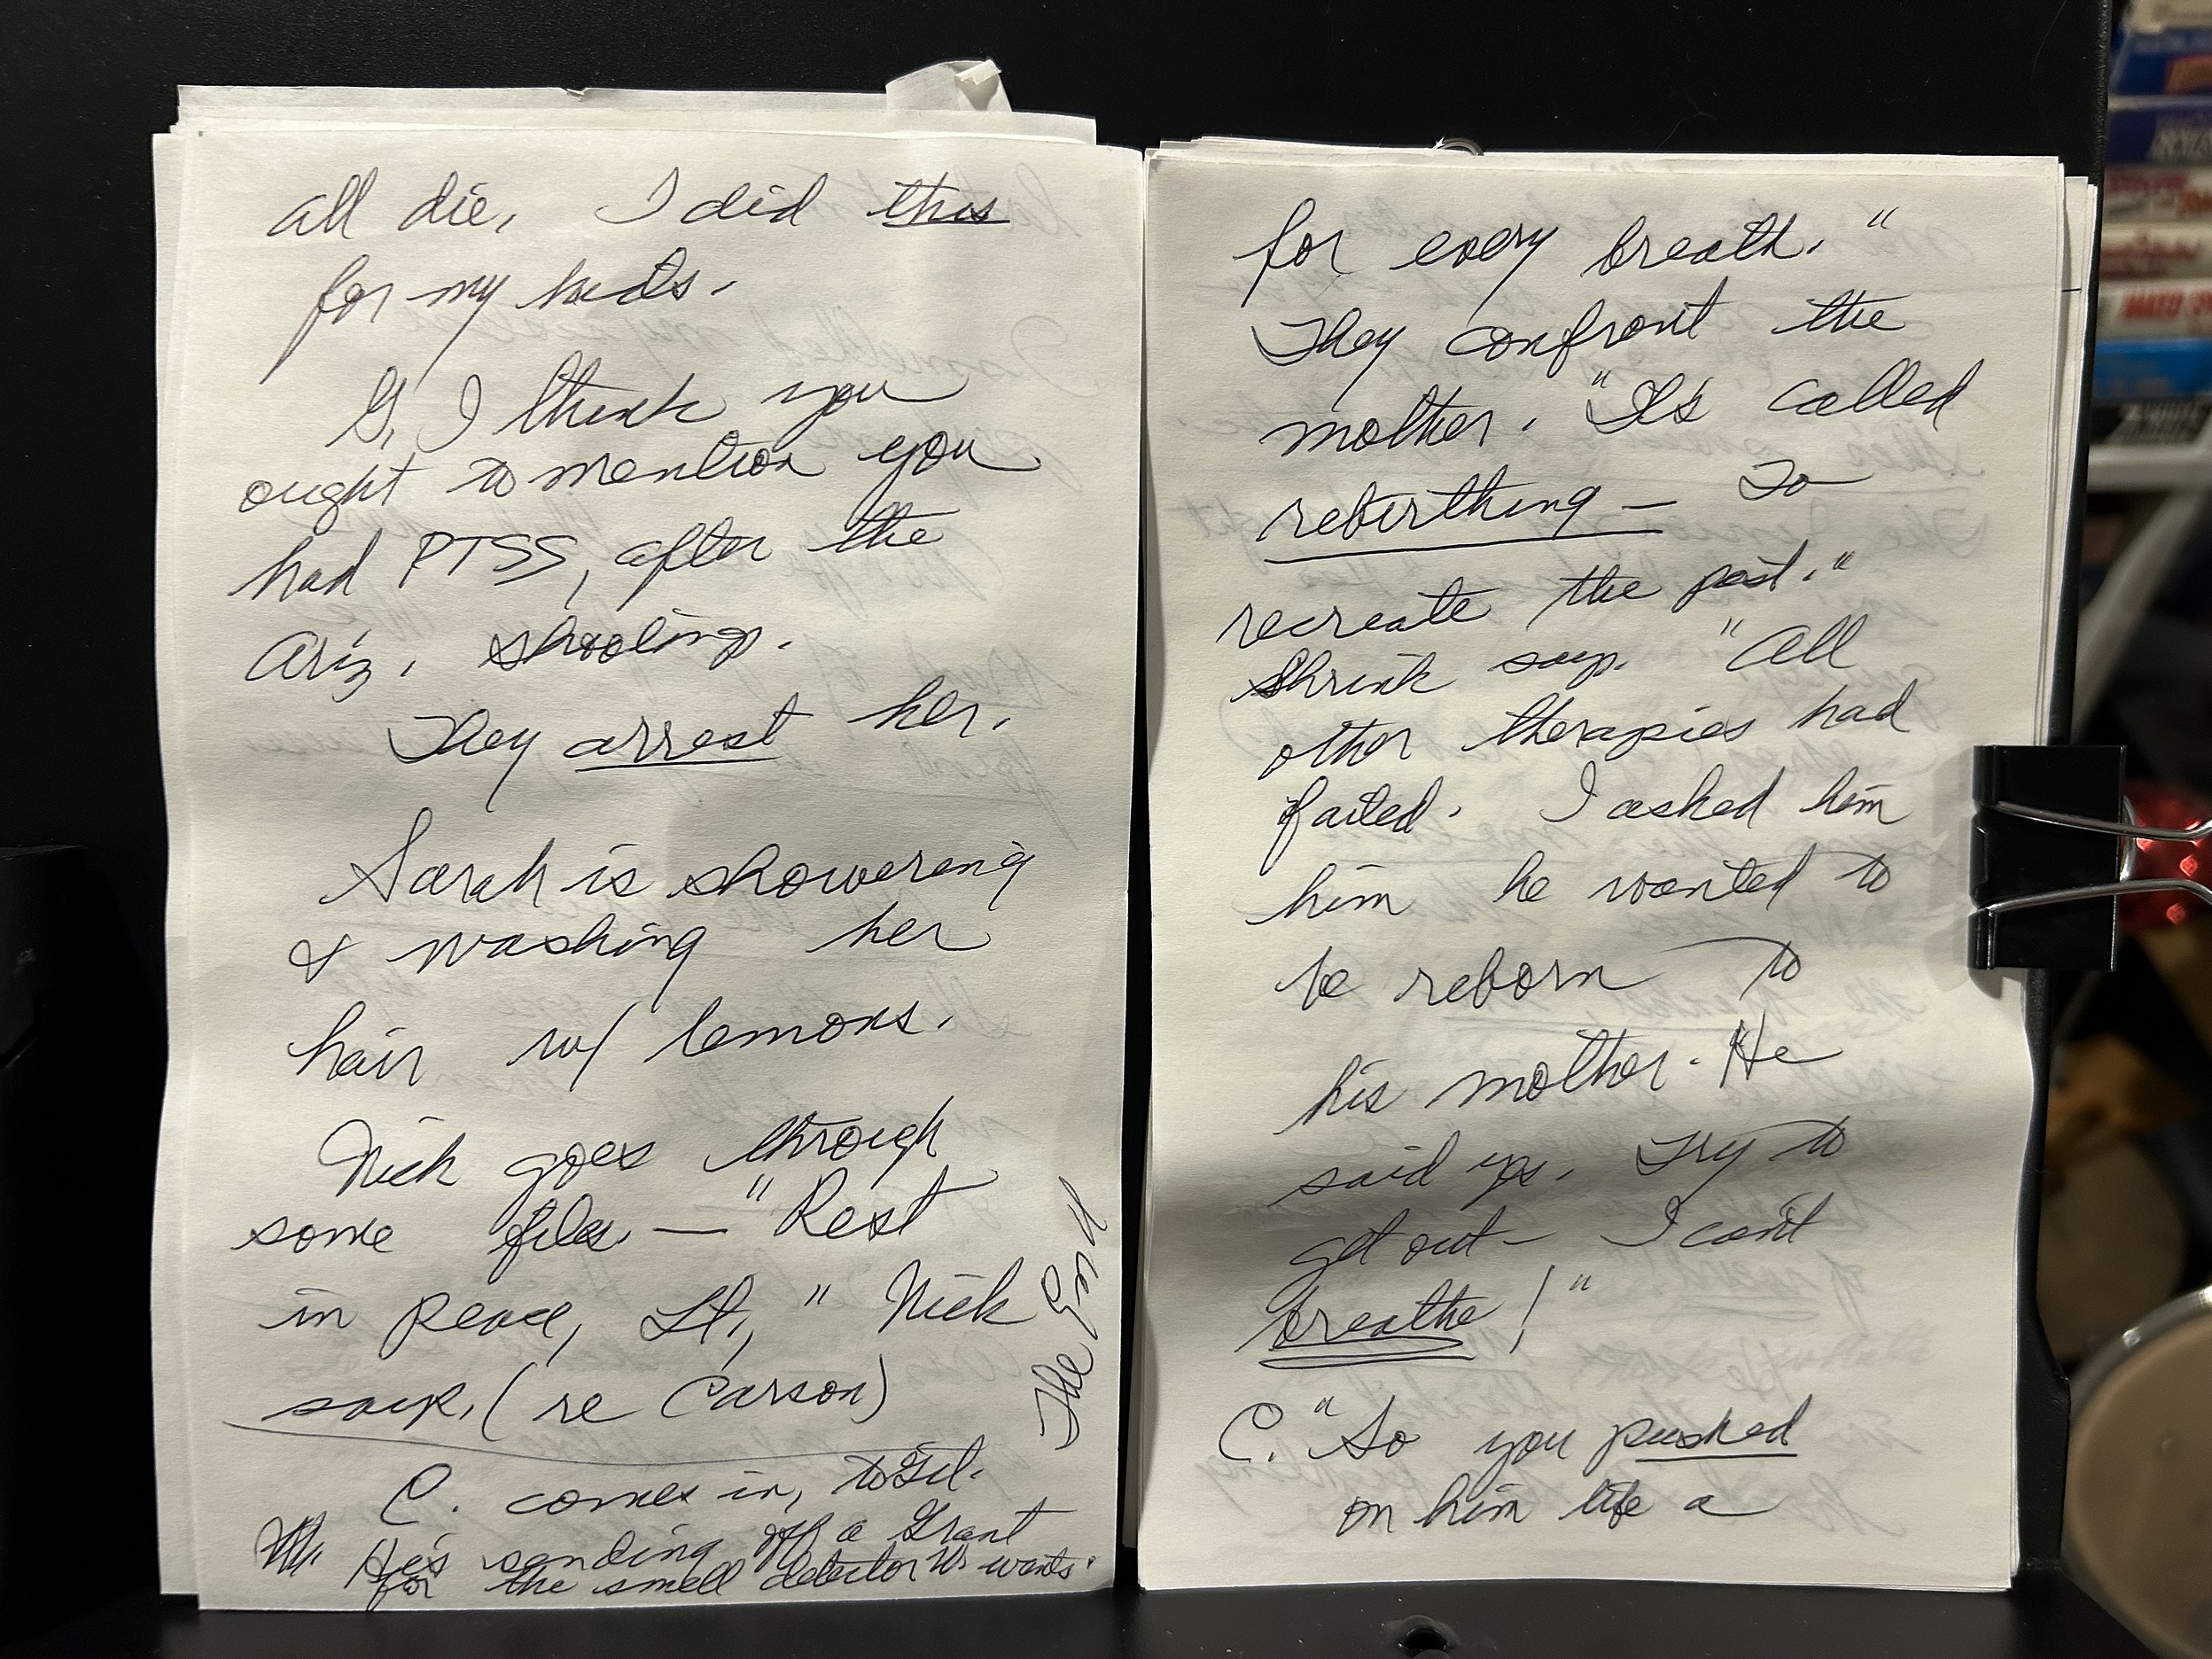 all die, I did this
for my kids.
G, I think you
ought to mention you
had PTSS, after the
Ariz. shooting.
They arrest her.
Sarah is showering
& washing her
hair w/ lemons.
Nick goes through
some files — "Rest
in peace, Lt," Nick
says. (re Carson)
The End
C. comes in, to Gil.
He's sending off a Grant
for the smell detector W. wants.
for every breath."
They confront the
mother. "It's called
rebirthing — To
recreate the past."
Shrink says. "All
other therapies had
failed. I asked him
him he wanted to
be reborn to
his mother. He
said yes. Try to
get out — I can't
breathe!"
C. "So you pushed
on him life a